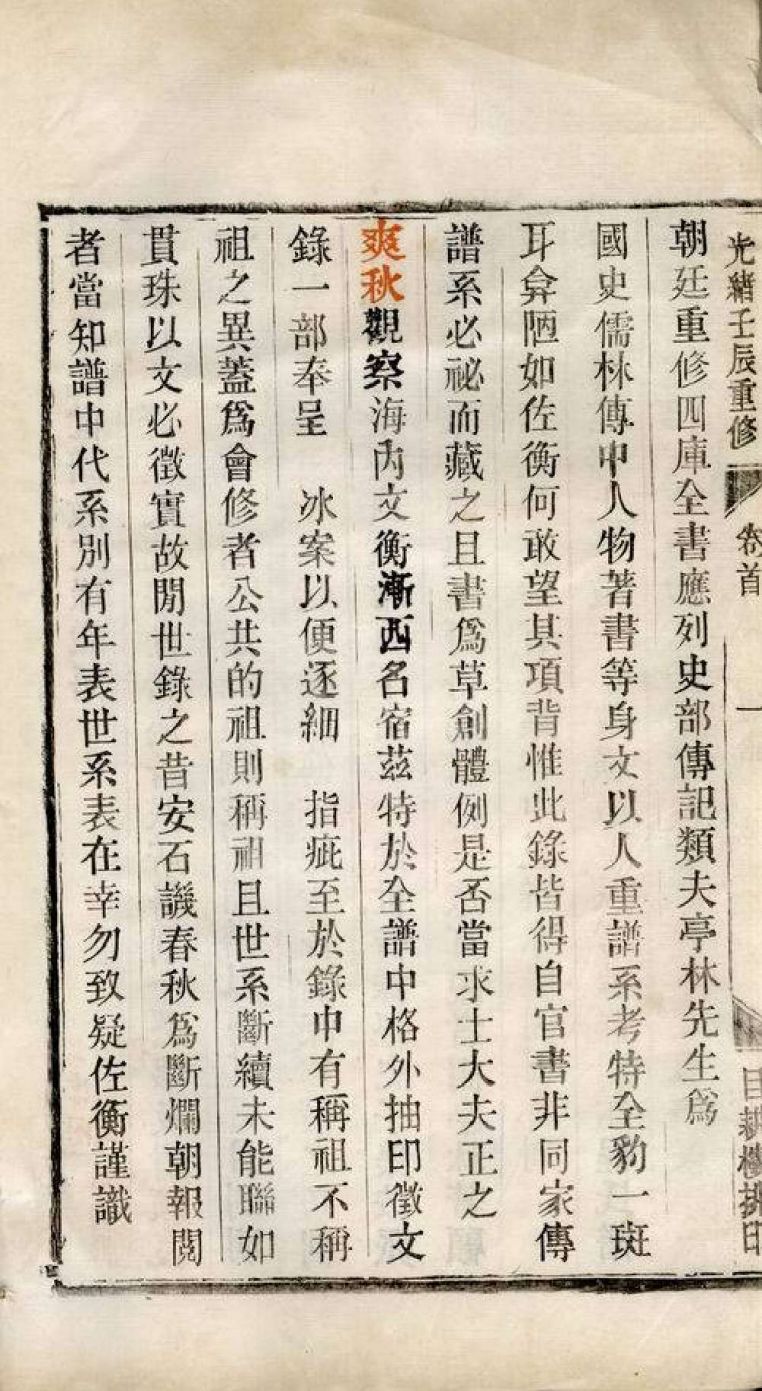 光緒壬辰重修 卷首 一 目耕樓排印
朝廷重修四庫全書應列史部傳記類夫亭林先生爲
國史儒林傳中人物著書等身文以人重譜系考特全豹一斑
耳弇陋如佐衡何敢望其項背惟此錄皆得自官書非同家傳
譜系必祕而藏之且書爲草創體例是否當求士大夫正之
爽秋觀察海內文衡漸西名宿茲特於全譜中格外抽印徵文
錄一部奉呈 冰案以便逐細 指疵至於錄中有稱祖不稱
祖之異蓋爲會修者公共的祖則稱祖且世系斷續未能聯如
貫珠以文必徵實故閒世錄之昔安石譏春秋爲斷爛朝報閱
者當知譜中代系別有年表世系表在幸勿致疑佐衡謹識